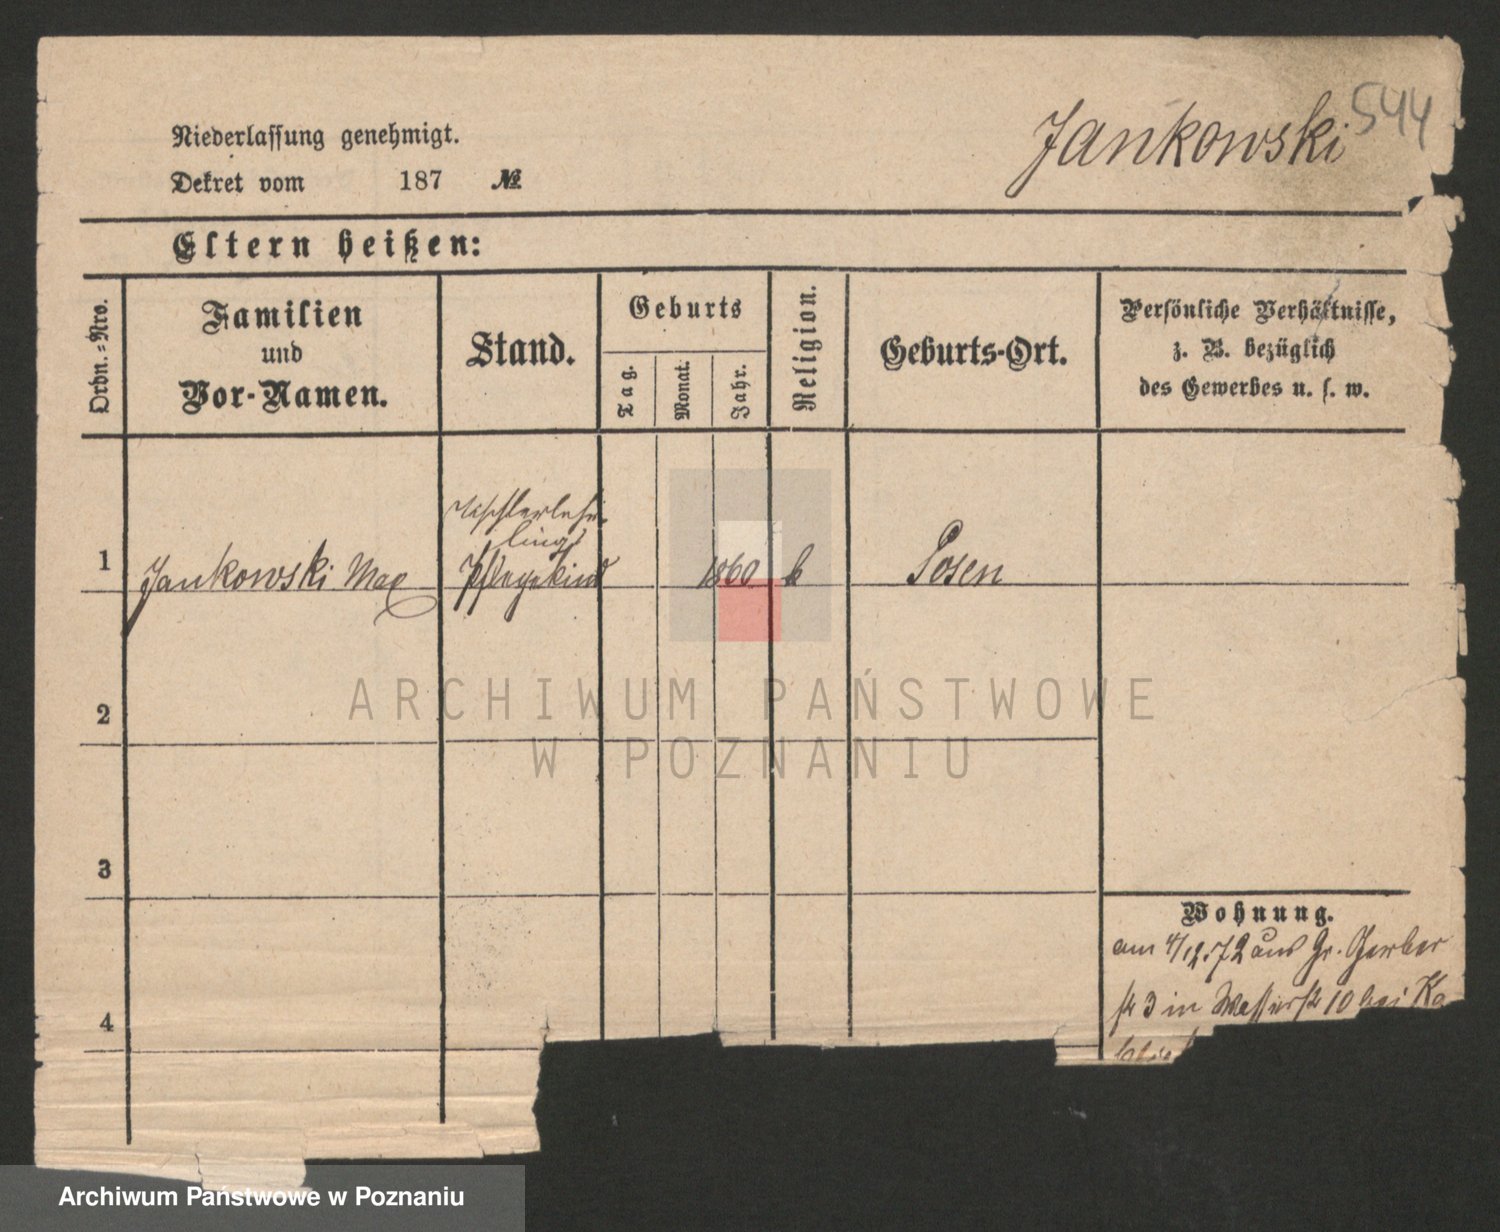 Jankowski
544
Niederlassung genehmigt.
Dekret vom 187 №
Eltern heißen:
Ordn.-Nro.
Familien
und
Vor-Namen.
Stand.
Geburts
Tag.
Monat.
Jahr.
Religion.
Geburts-Ort.
Persönliche Verhältnisse,
z. B. bezüglich
des Gewerbes u. s. w.
Tischlerlehr-
ling
1 Jankowski Max Pflegekind 1860 k Posen
2
3
4
Wohnung.
am 4/12.72 aus Gr. Gerber
str 3 in Wasserstr 10 bei Ka
ARCHIWUM PAŃSTWOWE
W POZNANIU
Archiwum Państwowe w Poznaniu